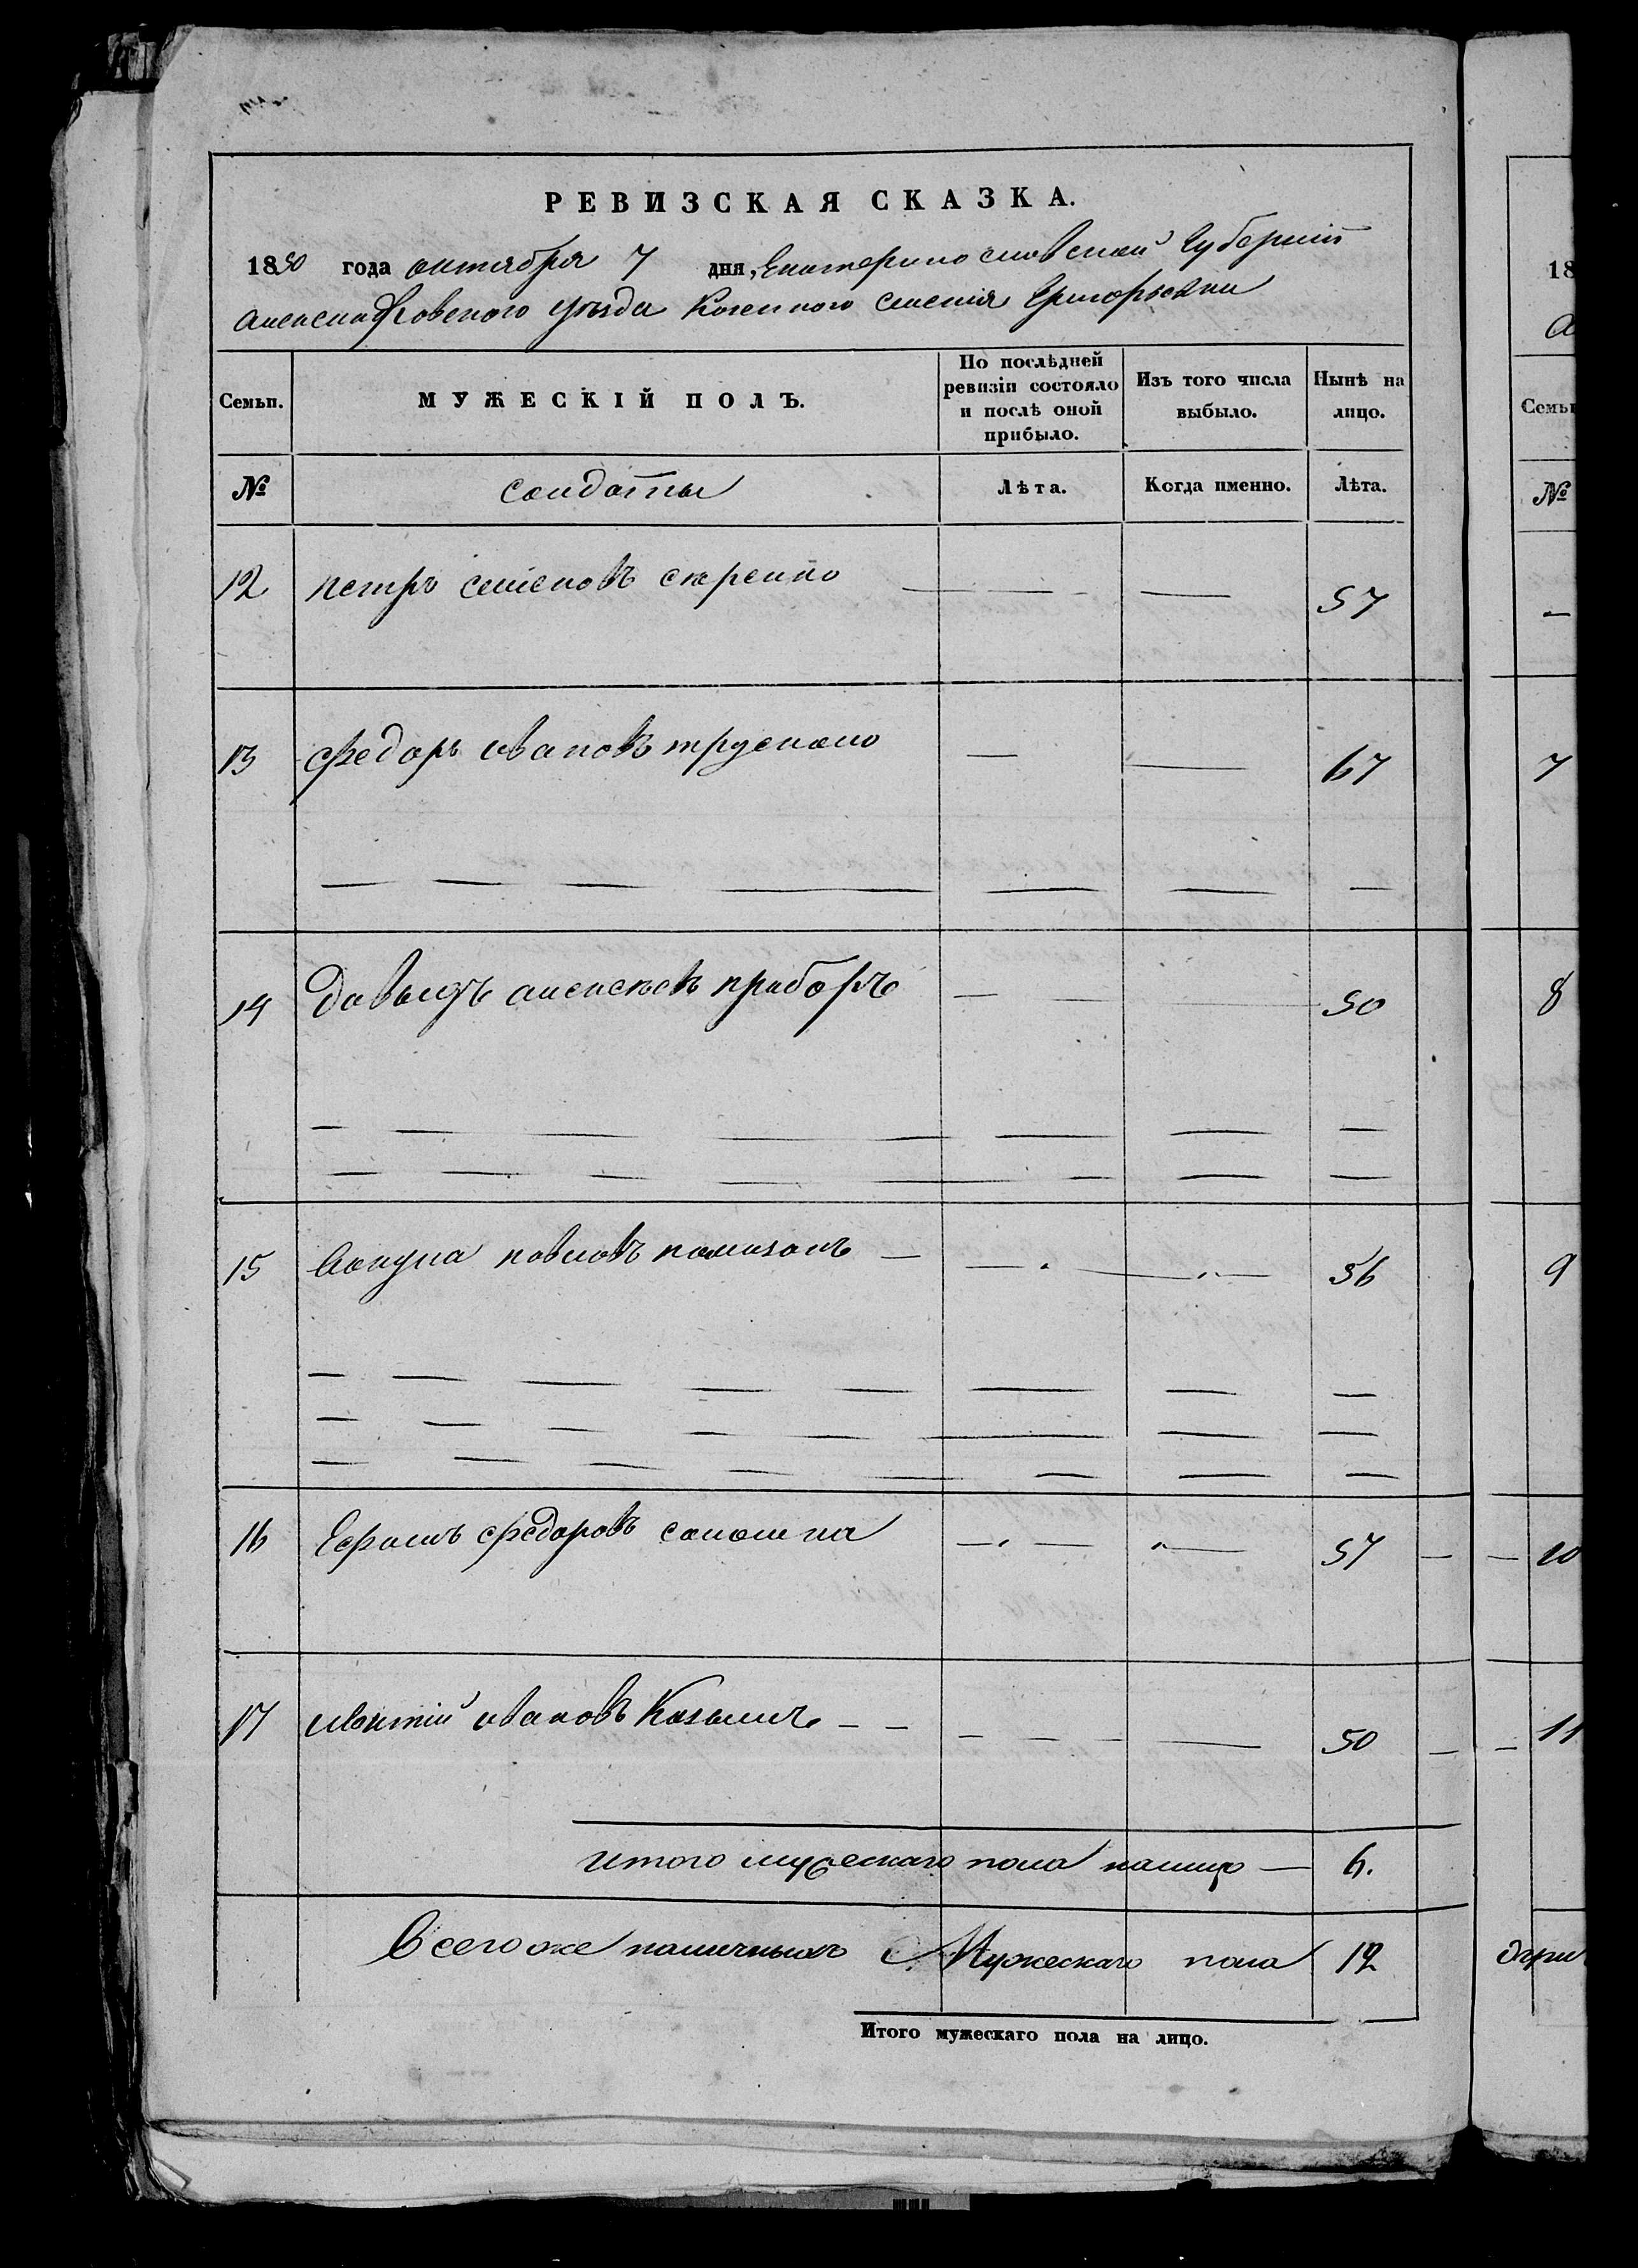 РЕВИЗСКАЯ СКАЗКА.
1850 года октября 7 дня, Екатеринославской Губернiи
Александровского уезда Казенного селенiя Григорьевки
Семьи.
МУЖЕСКІЙ ПОЛЪ.
По послѣдней ревизіи состояло и послѣ оной прибыло.
Изъ того числа выбыло.
Нынѣ на лицо.
№
солдаты
Лѣта.
Когда именно.
Лѣта.
12 петръ семеновъ 57
13 федоръ ивановъ 67
14 Давыдъ алексеевъ 50
15 павловъ 56
16 федоровъ 57
17 ивановъ 50
итого мужескаго пола налицо — 6.
Всегоже наличныхъ Мужескаго пола 12
Итого мужескаго пола на лицо.
18
Семьи
№
7
8
9
10
11